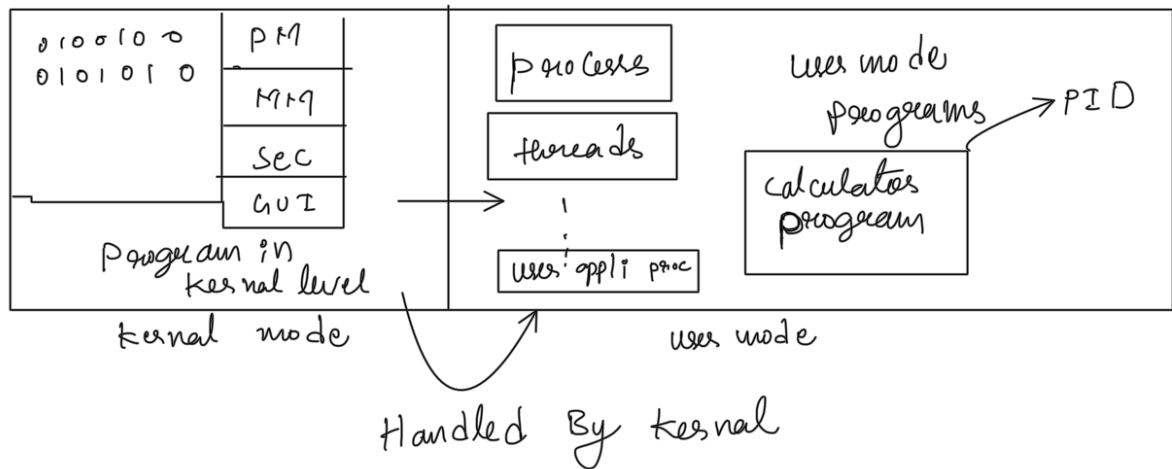 0100100
0101010
PM
MM
Sec
GUI
Program in
kernal level
kernal mode
process
threads
user appli proc
user mode
programs
PID
calculator
program
user mode
Handled By kernal